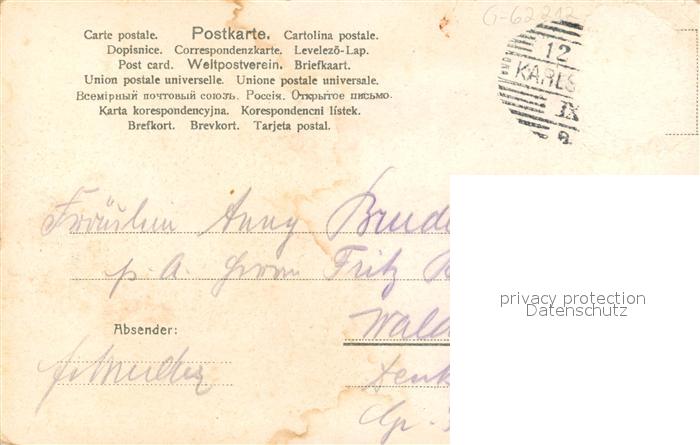 G-62212
Carte postale. Postkarte. Cartolina postale.
Dopisnice. Correspondenzkarte. Levelező-Lap.
Post card. Weltpostverein. Briefkaart.
Union postale universelle. Unione postale universale.
Всемірный почтовый союзъ. Россія. Открытое письмо.
Karta korespondencyjna. Korespondencni lístek.
Brefkort. Brevkort. Tarjeta postal.
12
KARLS
IX
Fräulein Anny
p. A. Herrn Fritz
Wald
privacy protection
Datenschutz
Absender: